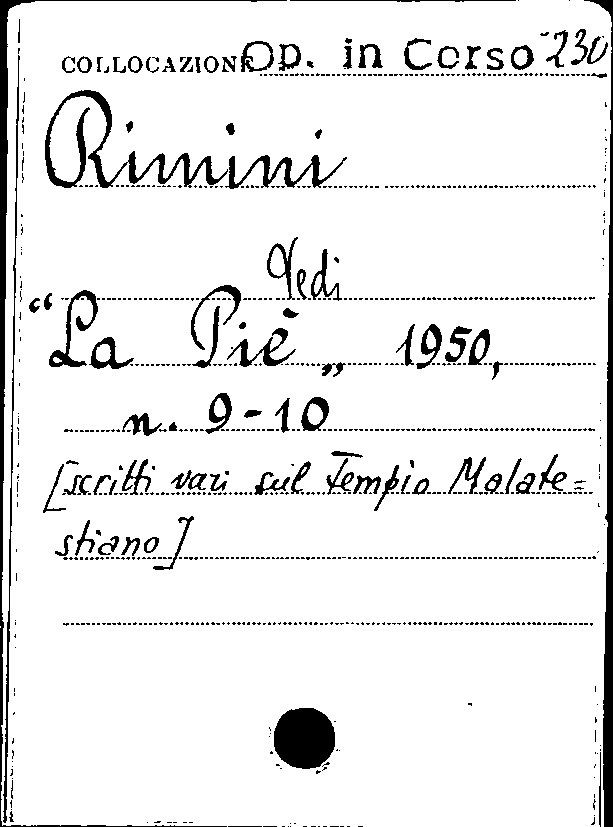 COLLOCAZIONE Op. in Corso 230
Rimini
Vedi
“La Piè„ 1950,
n. 9-10
[scritti vari sul Tempio Malate=
stiano]